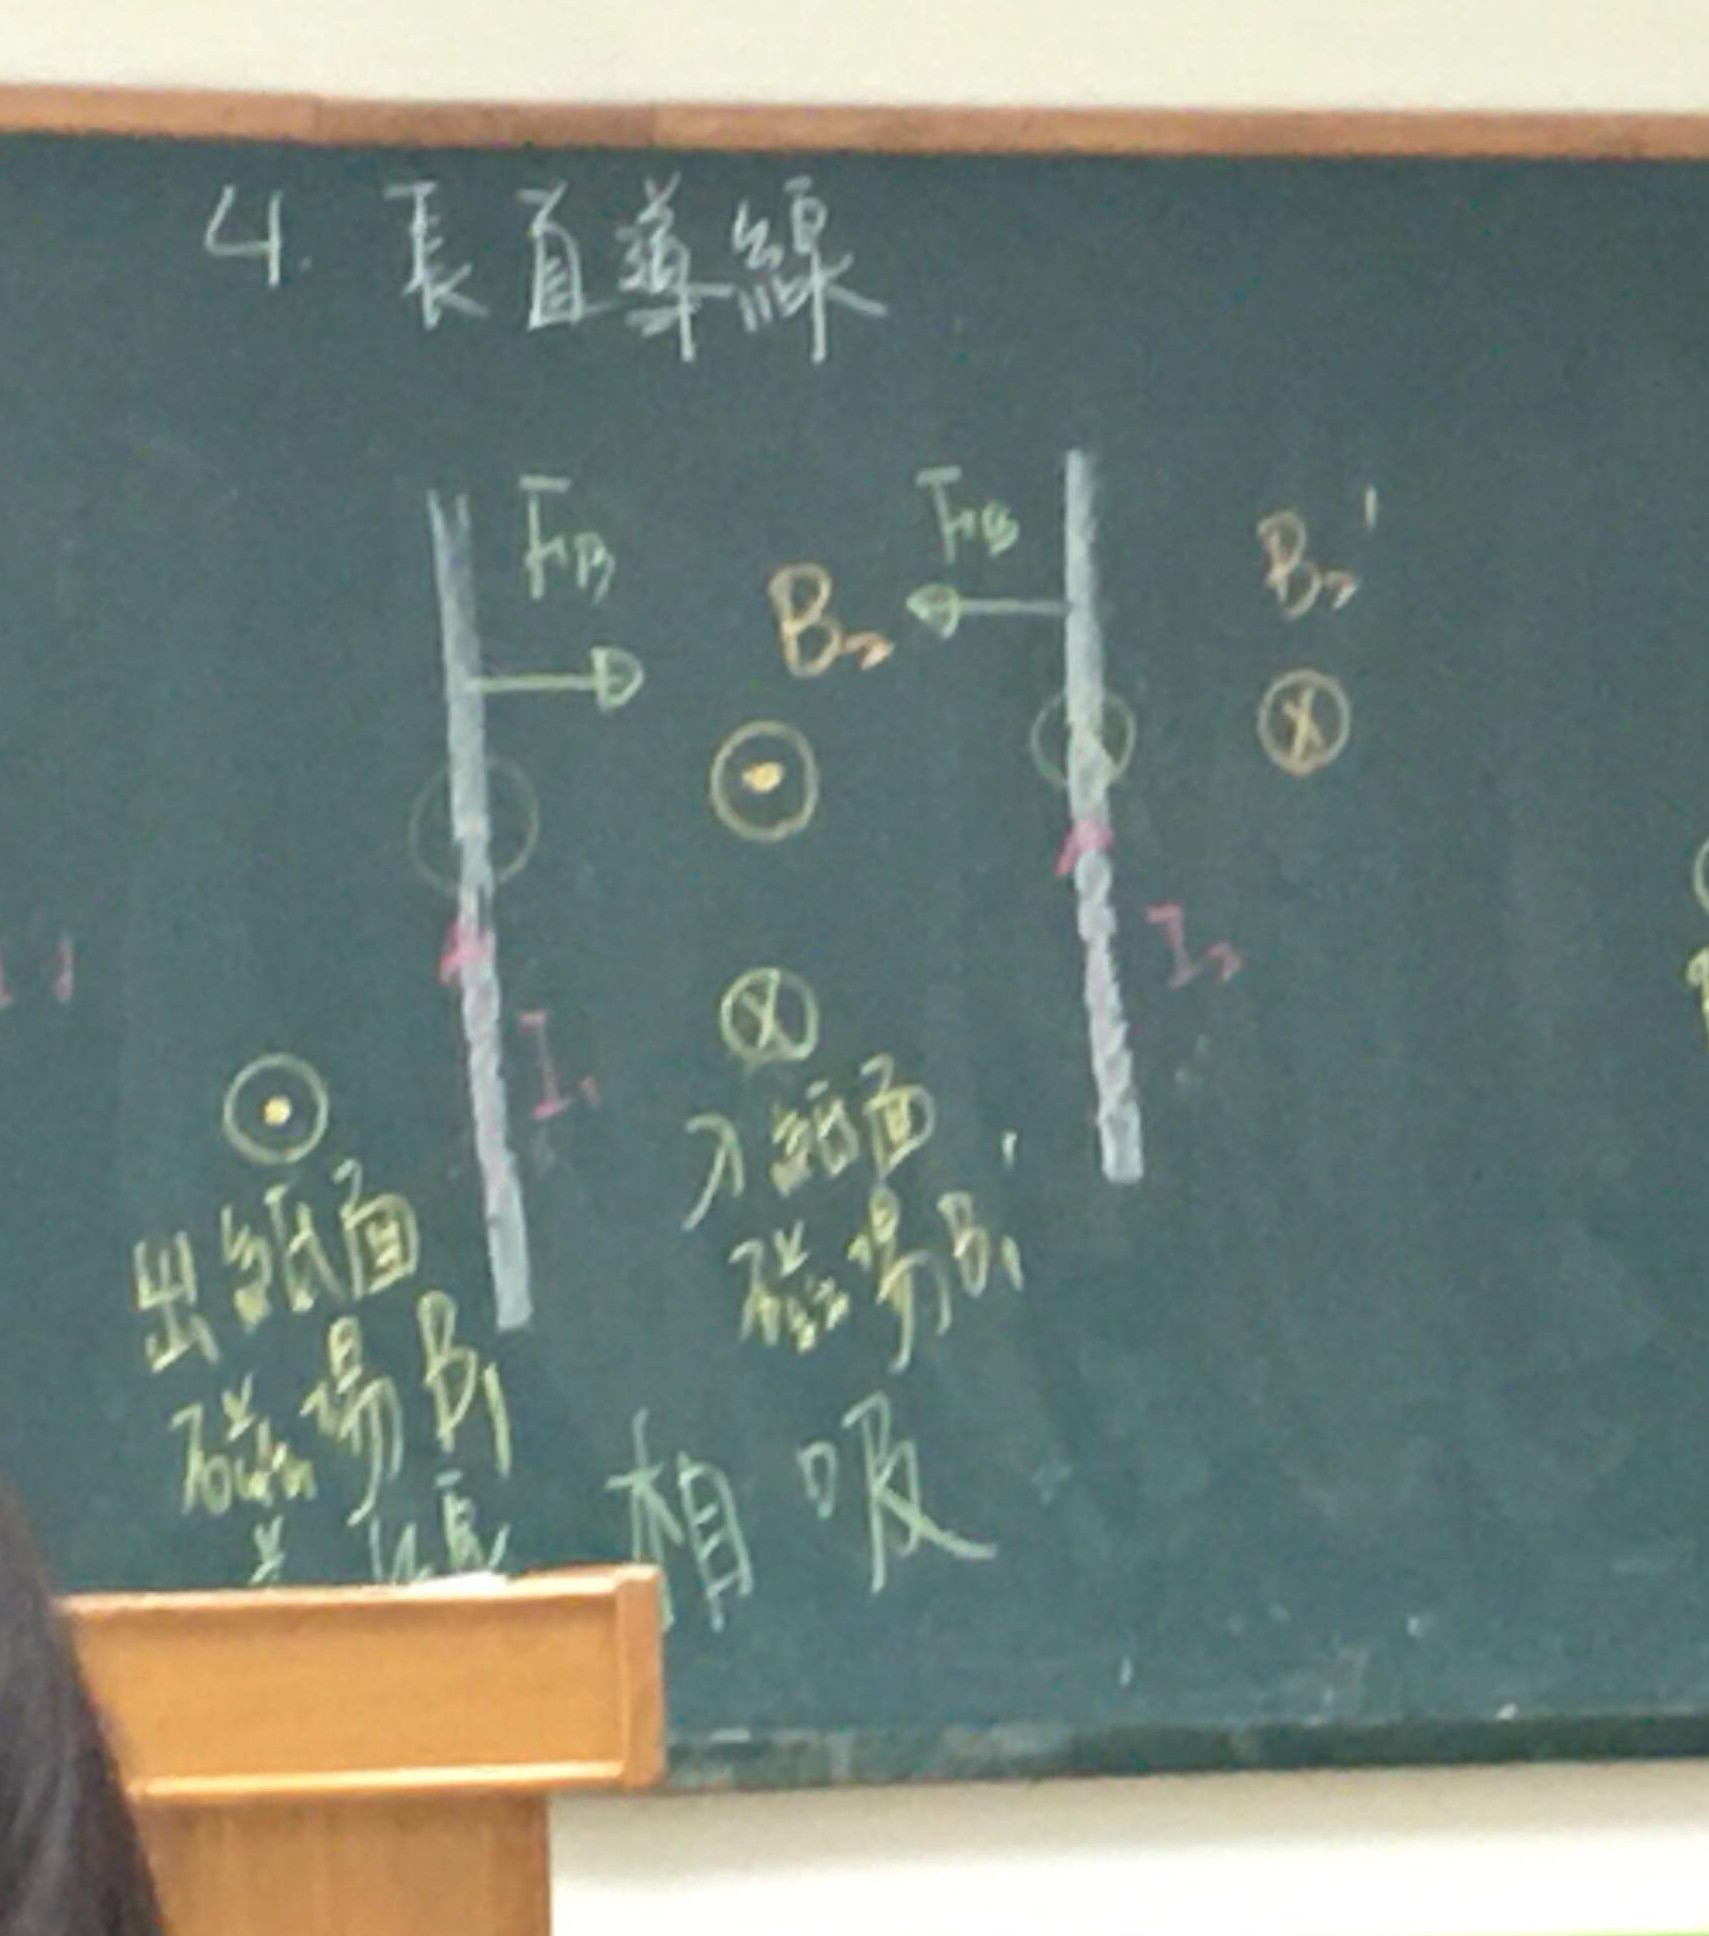 4. 長直導線
F_B
B₂
F_B
B₂'
I₁
I₂
出紙面
磁場B₁
入紙面
磁場B₁'
相吸